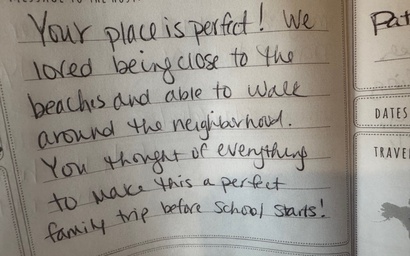 Your place is perfect! We
loved being close to the
beaches and able to walk
around the neighborhood.
You thought of everything
to make this a perfect
family trip before school starts!
Pat
DATES
TRAVE